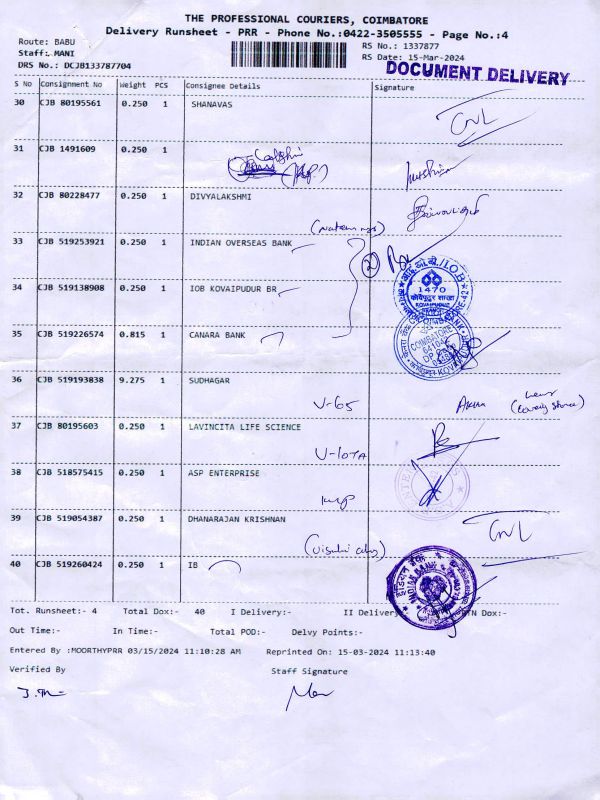 THE PROFESSIONAL COURIERS, COIMBATORE
Delivery Runsheet - PRR - Phone No.:0422-3505555 - Page No.:4
Route: BABU
RS No.: 1337877
Staff: MANI
RS Date: 15-Mar-2024
DRS No.: DCJB133787704
DOCUMENT DELIVERY
S No Consignment No Weight PCS Consignee Details Signature
30 CJB 80195561 0.250 1 SHANAVAS
31 CJB 1491609 0.250 1
32 CJB 80228477 0.250 1 DIVYALAKSHMI
33 CJB 519253921 0.250 1 INDIAN OVERSEAS BANK
2
34 CJB 519138908 0.250 1 IOB KOVAIPUDUR BR
1470
कोवैपुदूर शाखा
KOVAIPUDUR
35 CJB 519226574 0.815 1 CANARA BANK
COIMBATORE
36 CJB 519193838 9.275 1 SUDHAGAR
V-65
37 CJB 80195603 0.250 1 LAVINCITA LIFE SCIENCE
V-107A
38 CJB 518575415 0.250 1 ASP ENTERPRISE
39 CJB 519054387 0.250 1 DHANARAJAN KRISHNAN
40 CJB 519260424 0.250 1 IB
INDIAN BANK
Tot. Runsheet:- 4 Total Dox:- 40 I Delivery:- II Delivery:- Dox:-
Out Time:- In Time:- Total POD:- Delvy Points:-
Entered By :MOORTHYPRR 03/15/2024 11:10:28 AM Reprinted On: 15-03-2024 11:13:40
Verified By Staff Signature